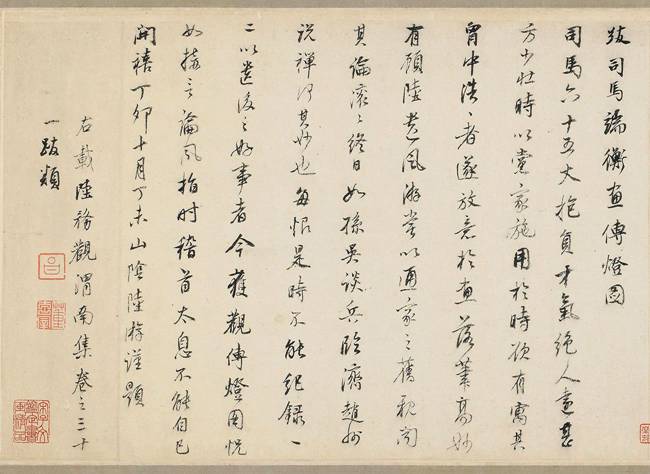 跋司馬端衡畫傳燈圖
司馬六十五丈抱負才氣絕人遠甚
方少壯時以黨家施用於時欲有寓其
胷中浩〻者遂放意於畫落筆高妙
有顧陸遺風游嘗以通家之舊親聞
其論滾〻終日如孫吳談兵臨濟趙州
説禪何其妙也每恨是時不能紀錄一
二以遺後之好事者今獲觀傳燈圖怳
如接言論風指时稽首太息不能自已
開禧丁卯十月丁未山陰陸游謹題
右載陸務觀渭南集卷之三十
一跋類